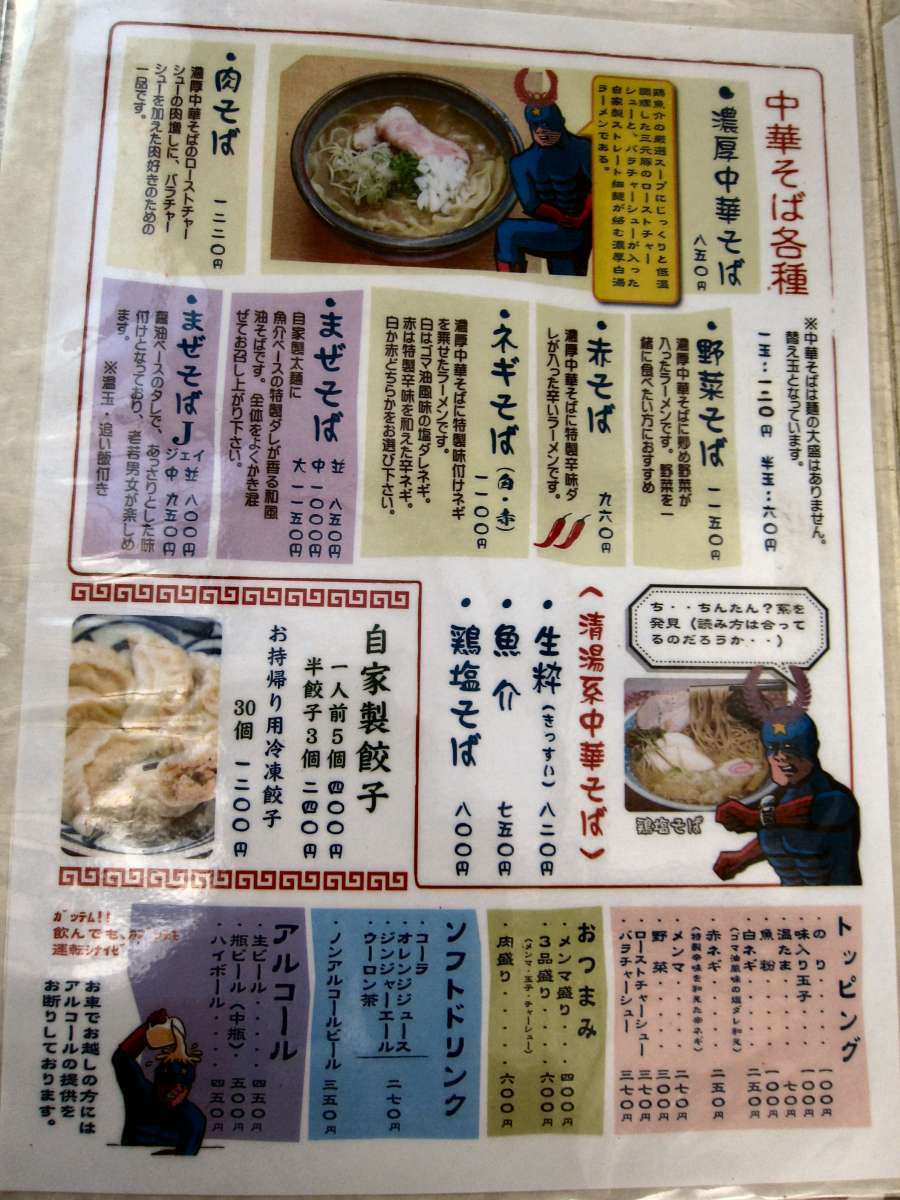 中華そば各種
・濃厚中華そば
八五〇円
鶏魚介の厳選スープにじっくりと低温
調理した三元豚のローストチャー
シューと、バラチャーシューが入った
自家製ストレート細麺が絡む濃厚白湯
ラーメンである。
・肉そば
一二二〇円
濃厚中華そばのローストチャー
シューの肉増しに、バラチャー
シューを加えた肉好きのための
一品です。
※中華そばは麺の大盛はありません。
替え玉となっています。
一玉:一二〇円 半玉:六〇円
・野菜そば 一一五〇円
濃厚中華そばに炒め野菜が
入ったラーメンです。野菜を一
緒に食べたい方におすすめ
・赤そば 九六〇円
濃厚中華そばに特製辛味ダ
レが入った辛いラーメンです。
・ネギそば(白・赤)
一一〇〇円
濃厚中華そばに特製味付けネギ
を乗せたラーメンです。
白はゴマ油風味の塩ダレネギ。
赤は特製辛味を和えた辛ネギ。
白か赤どちらかをお選び下さい。
・まぜそば
並 八五〇円
中 一〇〇〇円
大 一一五〇円
自家製太麺に
魚介ベースの特製ダレが香る和風
油そばです。全体をよくかき混
ぜてお召し上がり下さい。
・まぜそばJ
ジェイ
並 八〇〇円
中 九五〇円
醤油ベースのタレで、あっさりとした味
付けとなっており、老若男女が楽しめ
ます。 ※温玉・追い飯付き
ち・・ちんたん?系を
発見(読み方は合って
るのだろうか・・)
鶏塩そば
〈清湯系中華そば〉
・生粋(きっすい) 八二〇円
・魚介 七五〇円
・鶏塩そば 八〇〇円
自家製餃子
一人前5個 四〇〇円
半餃子3個 二四〇円
お持帰り用冷凍餃子
30個 一二〇〇円
トッピング
・のり・・・・一〇〇円
・味入り玉子・・一〇〇円
・温たま・・・・七〇円
・魚粉・・・・一〇〇円
・白ネギ・・・・二五〇円
(ゴマ油風味の塩ダレ和え)
・赤ネギ・・・・二五〇円
(特製辛味を和えた辛ネギ)
・メンマ・・・・二七〇円
・野菜・・・・三〇〇円
・ローストチャーシュー 三七〇円
・バラチャーシュー 三七〇円
おつまみ
・メンマ盛り・・四〇〇円
・3品盛り・・・六〇〇円
(メンマ・玉子・チャーシュー)
・肉盛り・・・・六〇〇円
ソフトドリンク
・コーラ
・オレンジジュース
・ジンジャーエール
・ウーロン茶
二七〇円
・ノンアルコールビール 三五〇円
アルコール
・生ビール・・・四五〇円
・瓶ビール(中瓶)・五〇〇円
・ハイボール・・・四五〇円
ガッテム!!
飲んでも、
お車でお越しの方には
アルコールの提供を
お断りしております。